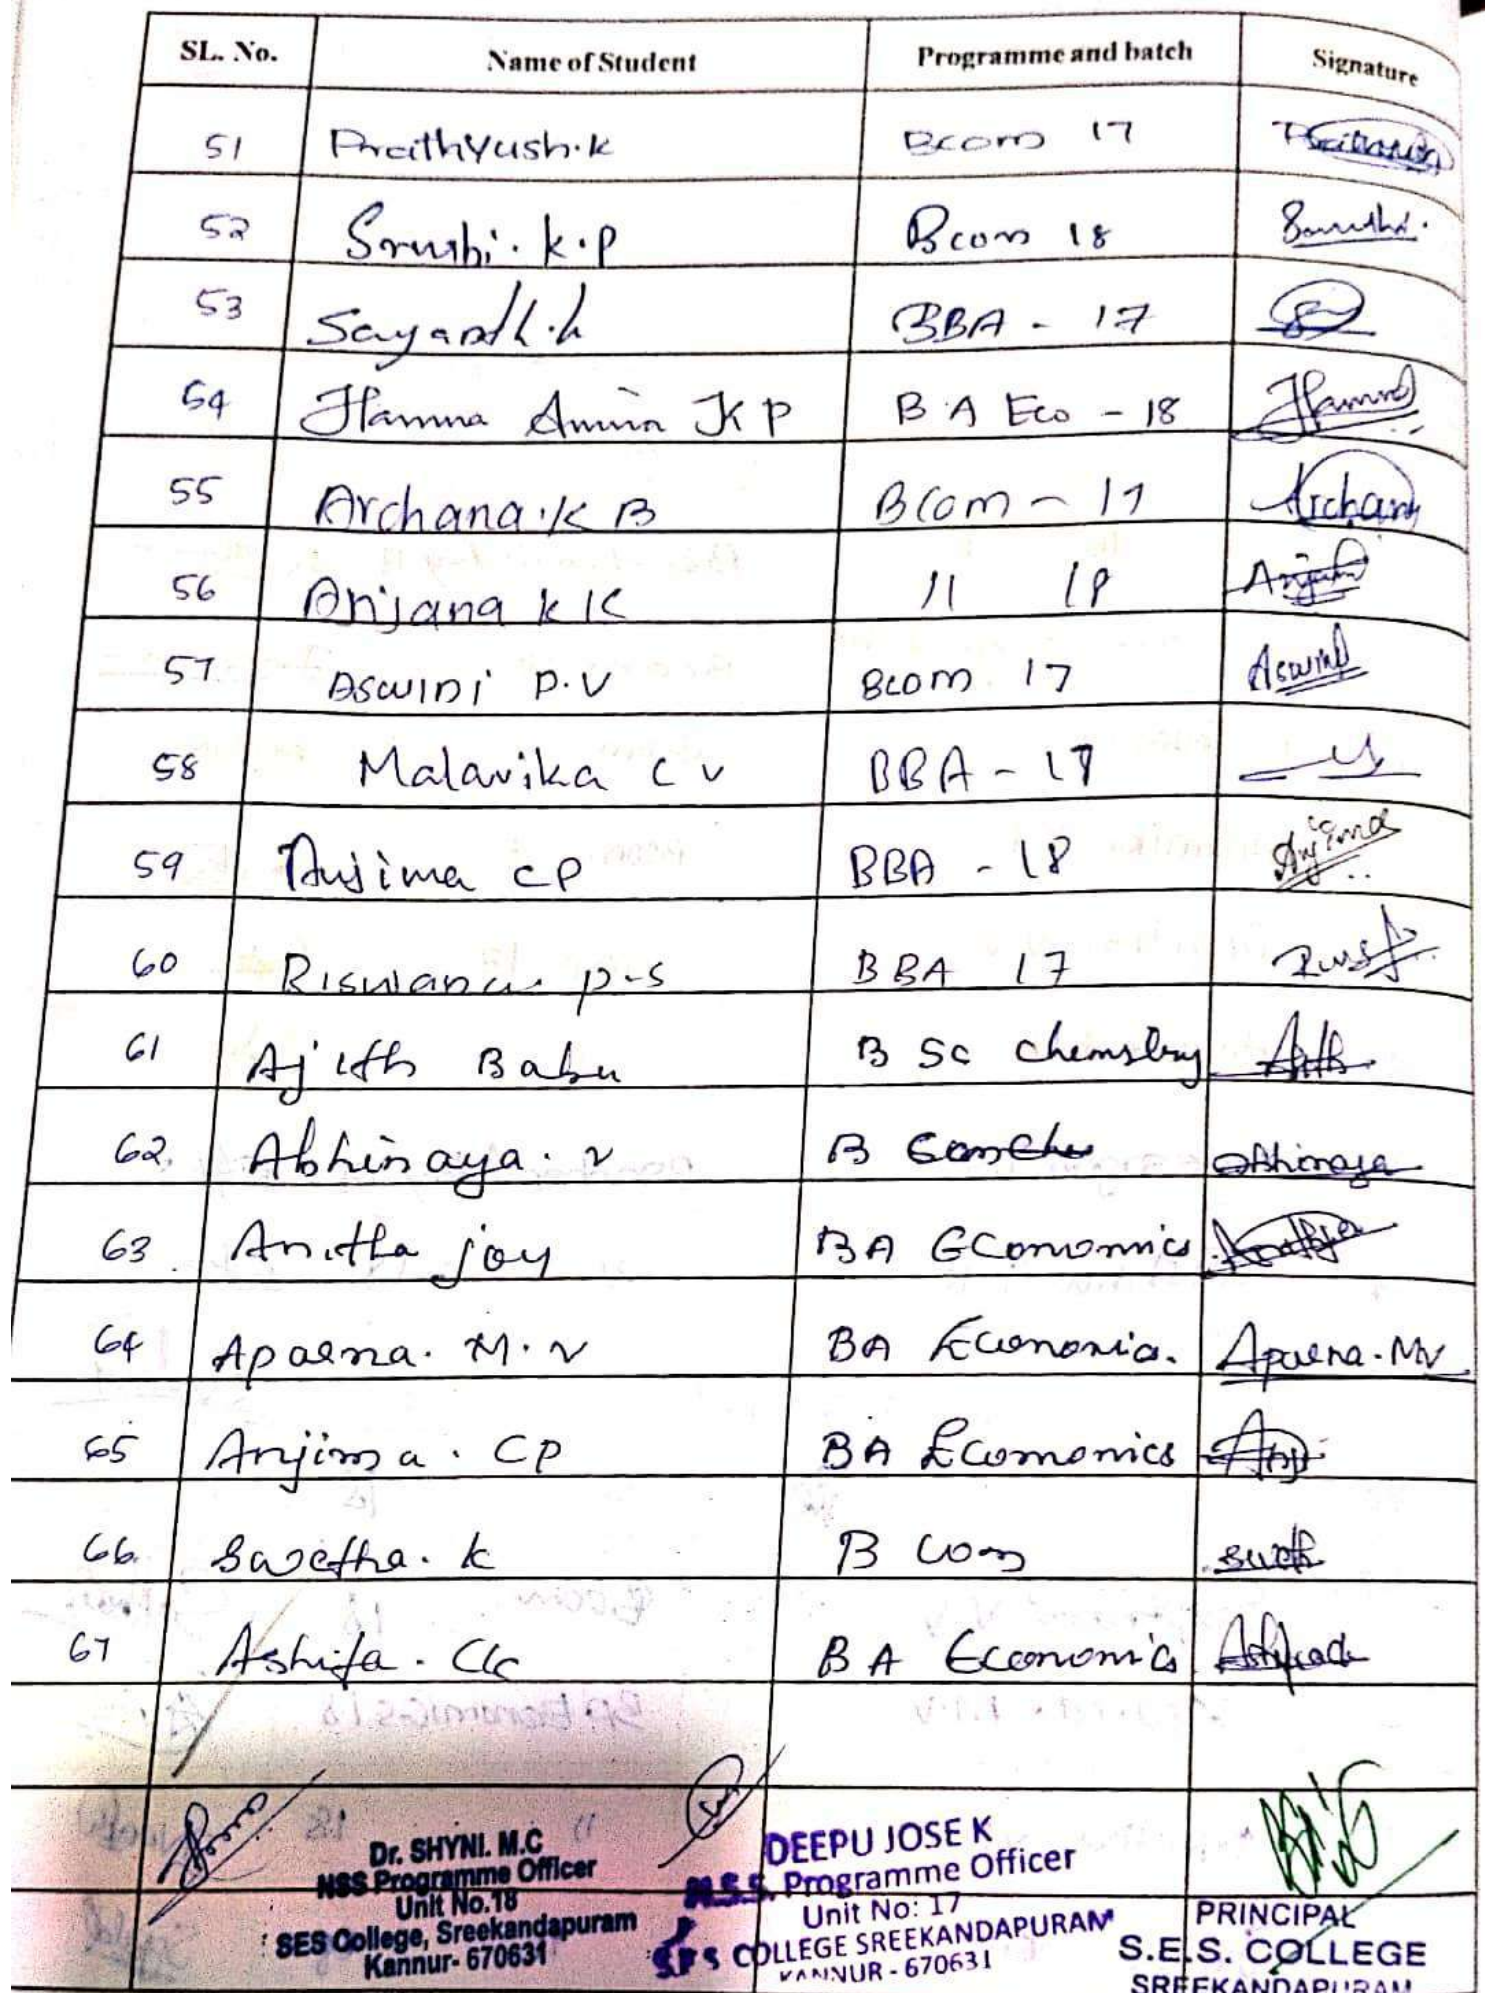 SL. No. Name of Student Programme and batch Signature
51 Prathyush.k Bcom 17
52 K.P Bcom 18
53 BBA - 17
54 Hamna Amina K P B A Eco - 18 Hamna
55 Archana.K B BCom - 17 Archana
56 Anjana K K 11 18 Anjana
57 Aswini P.V Bcom 17 Aswini
58 Malavika C V BBA - 17
59 Anjima CP BBA - 18 Anjima
60 Riswana P-S BBA 17
61 Ajith Babu B Sc Chemstry
62 Abhinaya. V B Abhinaya
63 Anitha joy BA Economics
64 Aparna. M. V BA Economics. Aparna. MV
65 Anjima. CP BA Economics
66 Swetha. k B Com
67 Ashifa. CK BA Economics
Dr. SHYNI. M.C
NSS Programme Officer
Unit No.18
SES College, Sreekandapuram
Kannur- 670631
DEEPU JOSE K
N.S.S. Programme Officer
Unit No: 17
S.E.S COLLEGE SREEKANDAPURAM
KANNUR - 670631
PRINCIPAL
S.E.S. COLLEGE
SREEKANDAPURAM